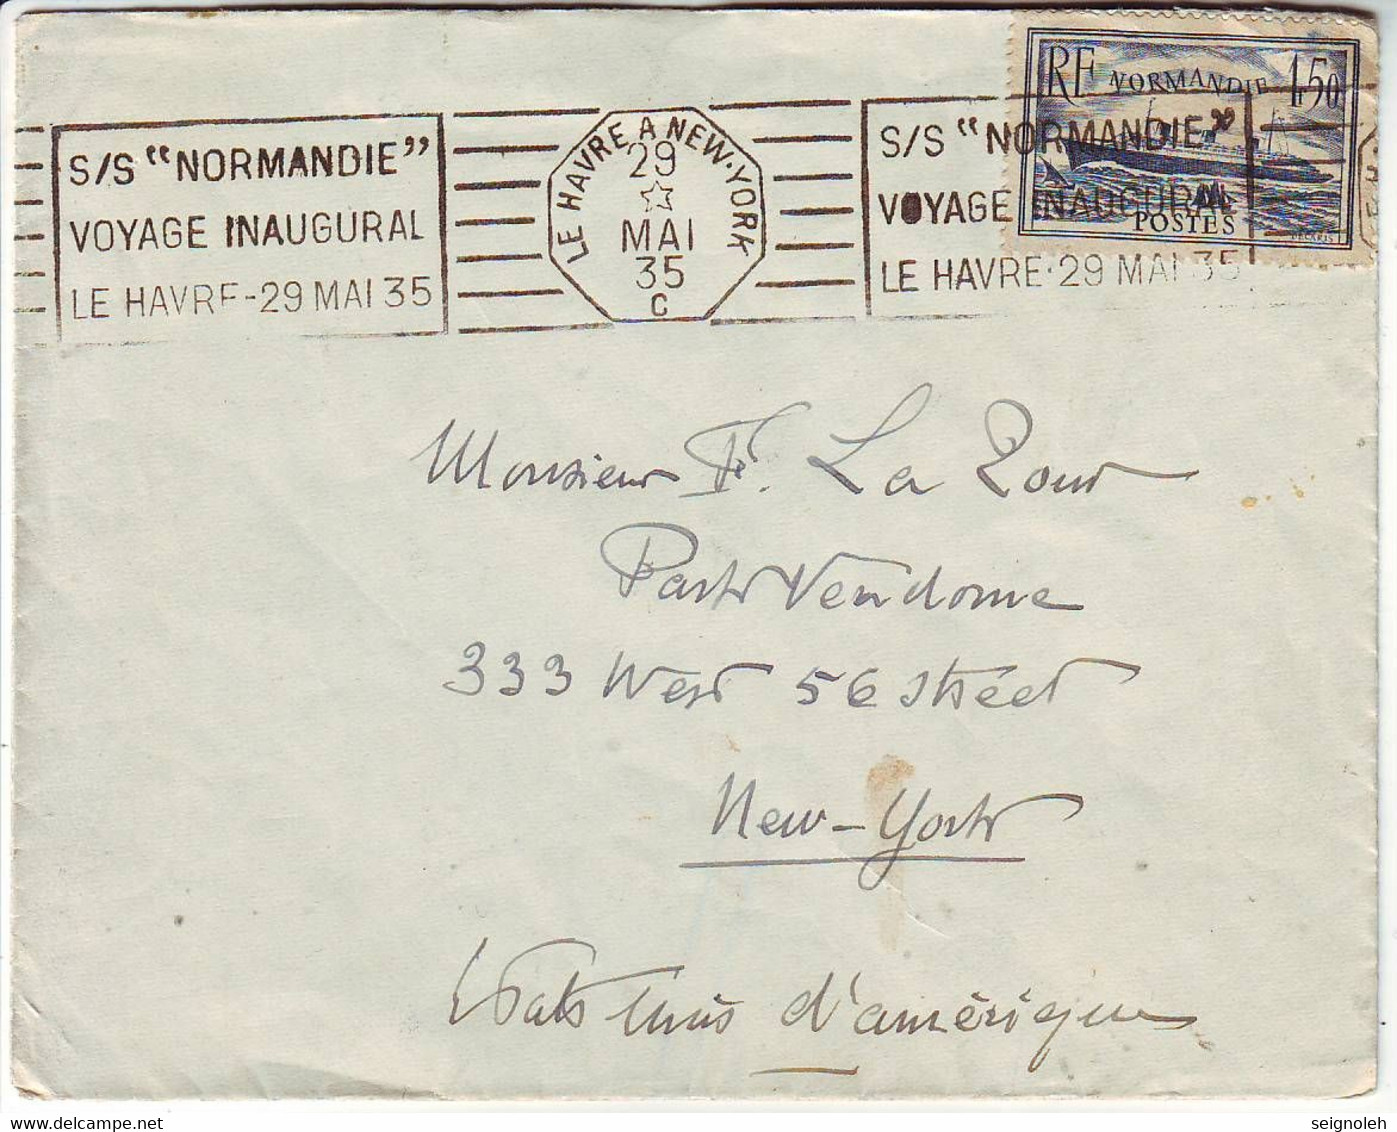 RF NORMANDIE 1F50
POSTES
DECARIS
S/S "NORMANDIE"
VOYAGE INAUGURAL
LE HAVRE-29 MAI 35
LE HAVRE A NEW-YORK
29
MAI
35
C
S/S "NORMANDIE"
VOYAGE INAUGURAL
LE HAVRE-29 MAI 35
Monsieur F. La
Parc Vendome
333 West 56 Street
New-York
Etats Unis d'amérique
seignoleh